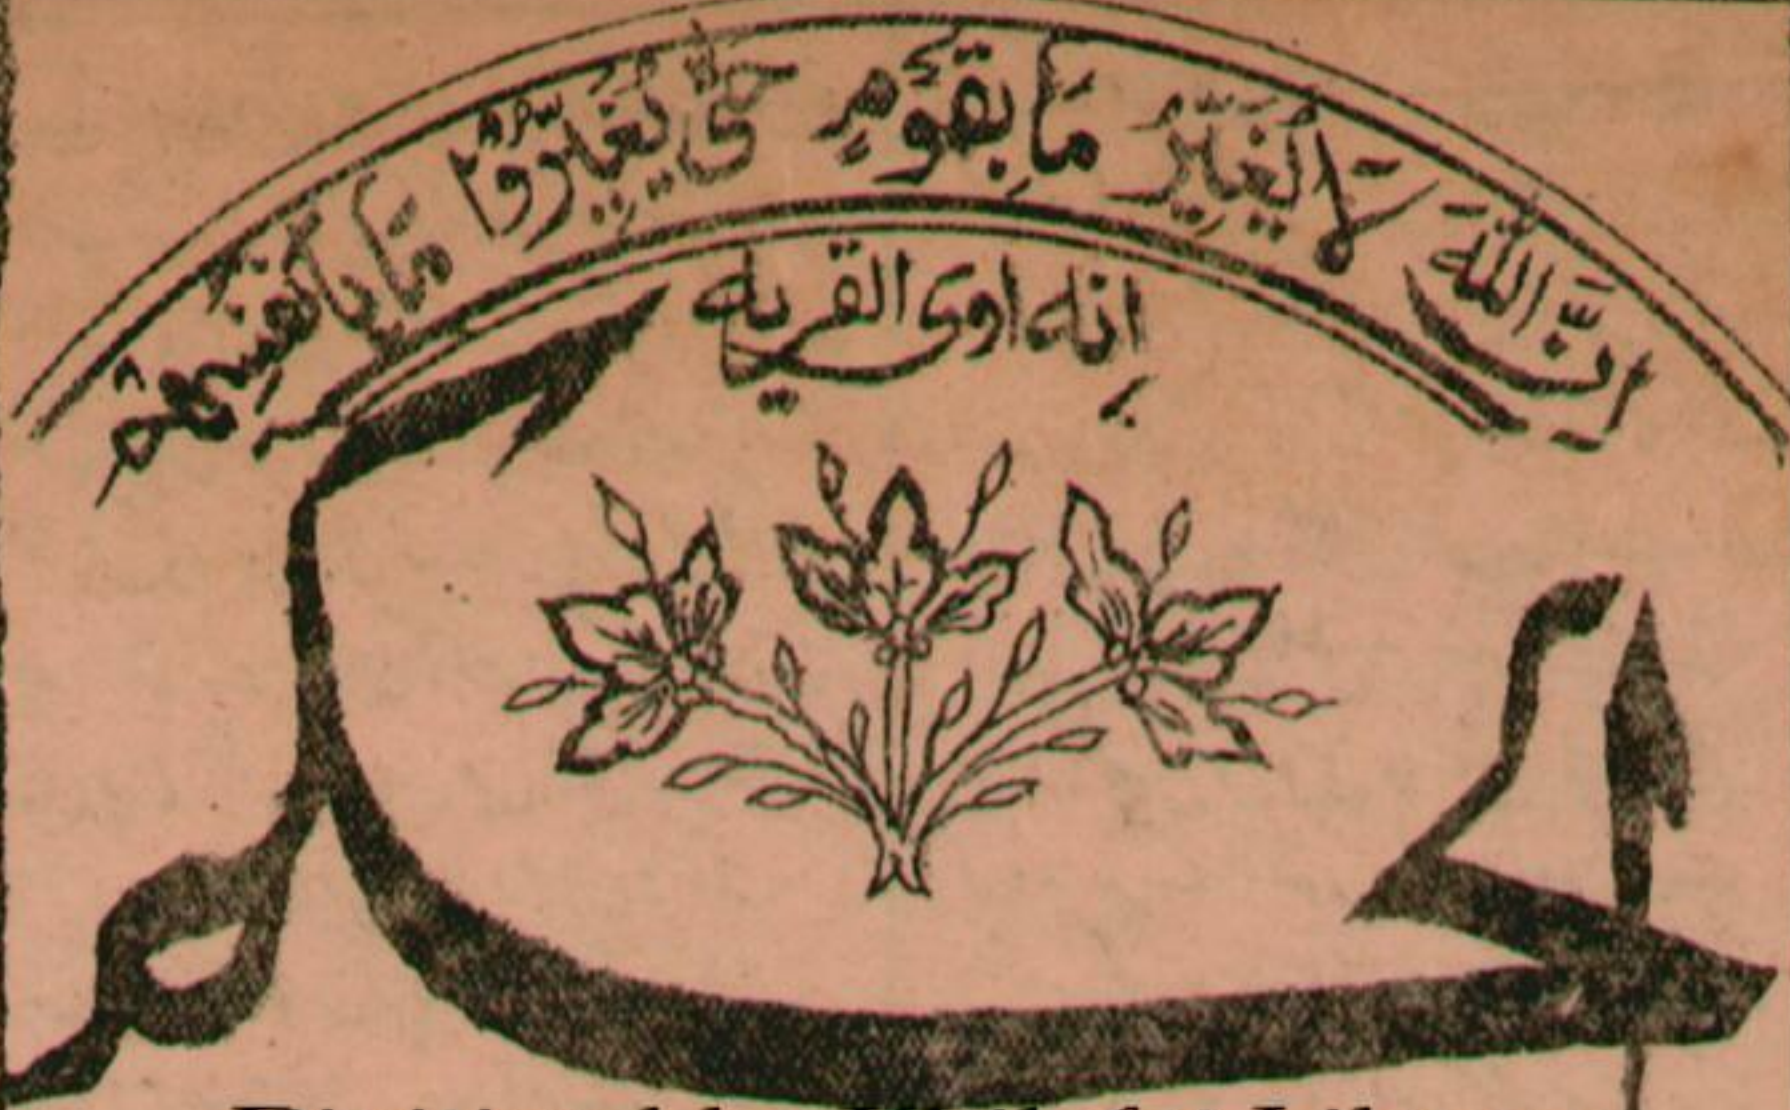 اِنَّ اللّٰهَ لَا یُغَیِّرُ مَا بِقَوْمٍ حَتّٰی یُغَیِّرُوْا مَا بِاَنْفُسِهِمْ
اِنه اوی القریه
الحکم